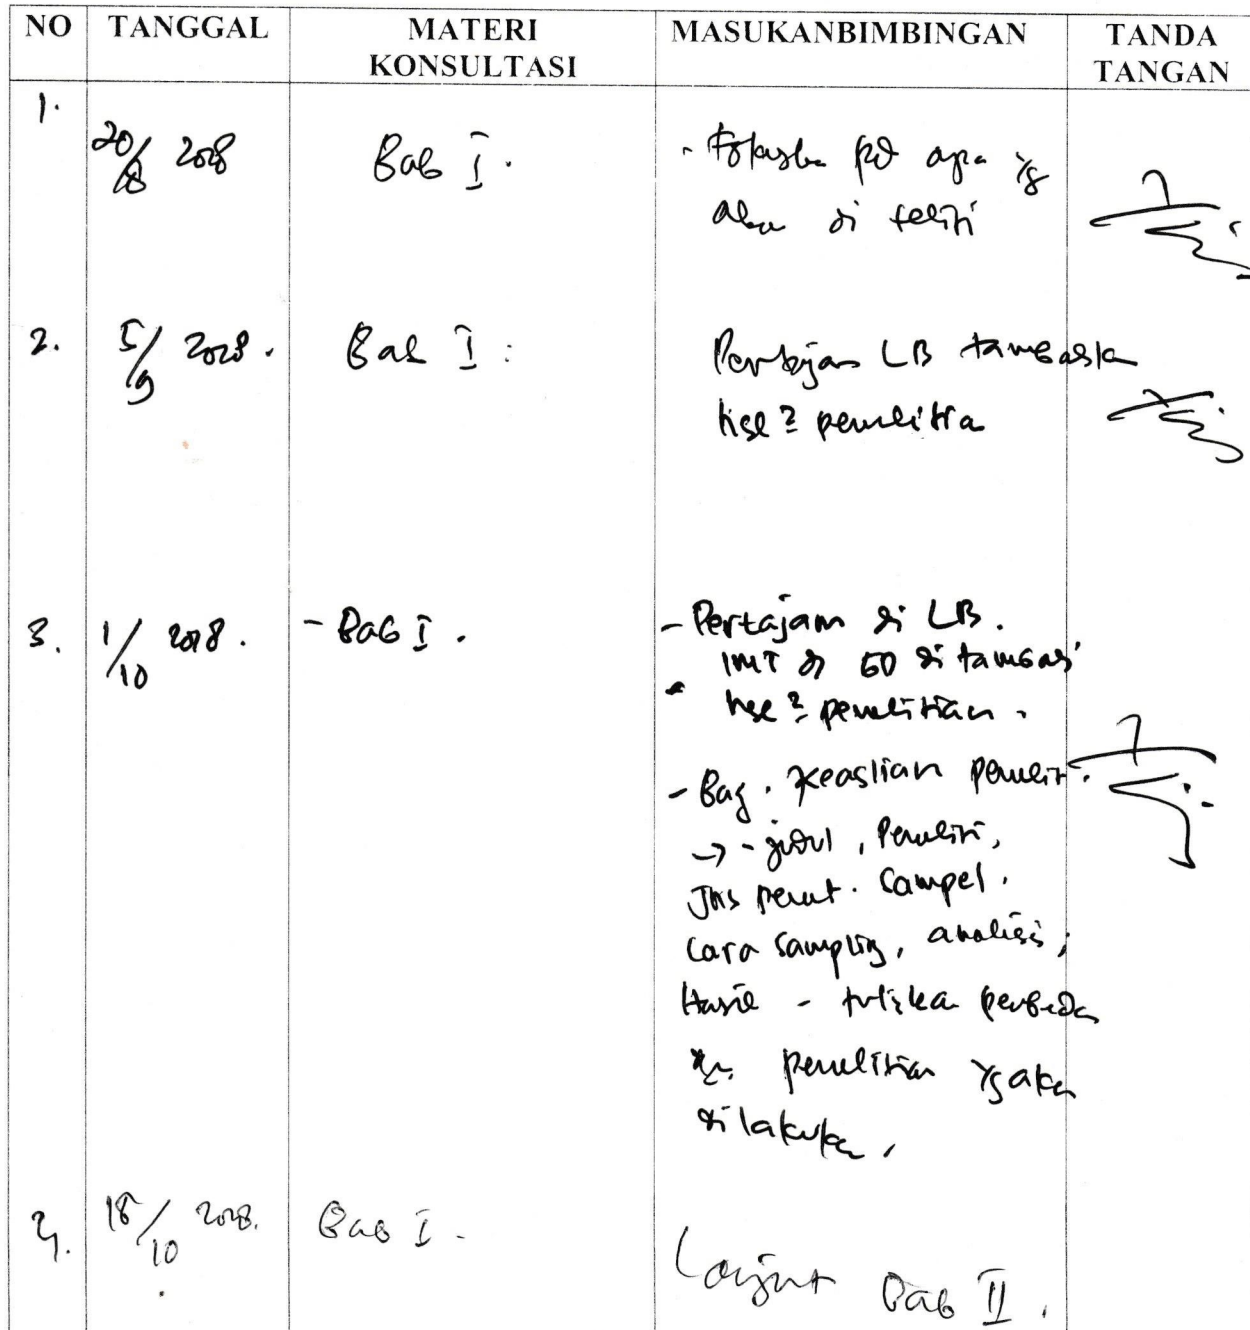 NO TANGGAL MATERI KONSULTASI MASUKANBIMBINGAN TANDA TANGAN
1. 20/8 2018 Bab I. - pd apa yg
di teliti
2. 5/9 2018. Bab I: LB
penelitia
3. 1/10 2018. - Bab I. - Pertajam di LB.
IMT di tambah
penelitian.
- Bag. Keaslian penelit.
→ - judul, Peneliti,
Jns Sampel.
Cara Samplig, analisis,
Hasil - tuliska perbeda
penelitian yg aka
dilakuka.
4. 18/10 2018. Bab I. Lanjut Bab II.